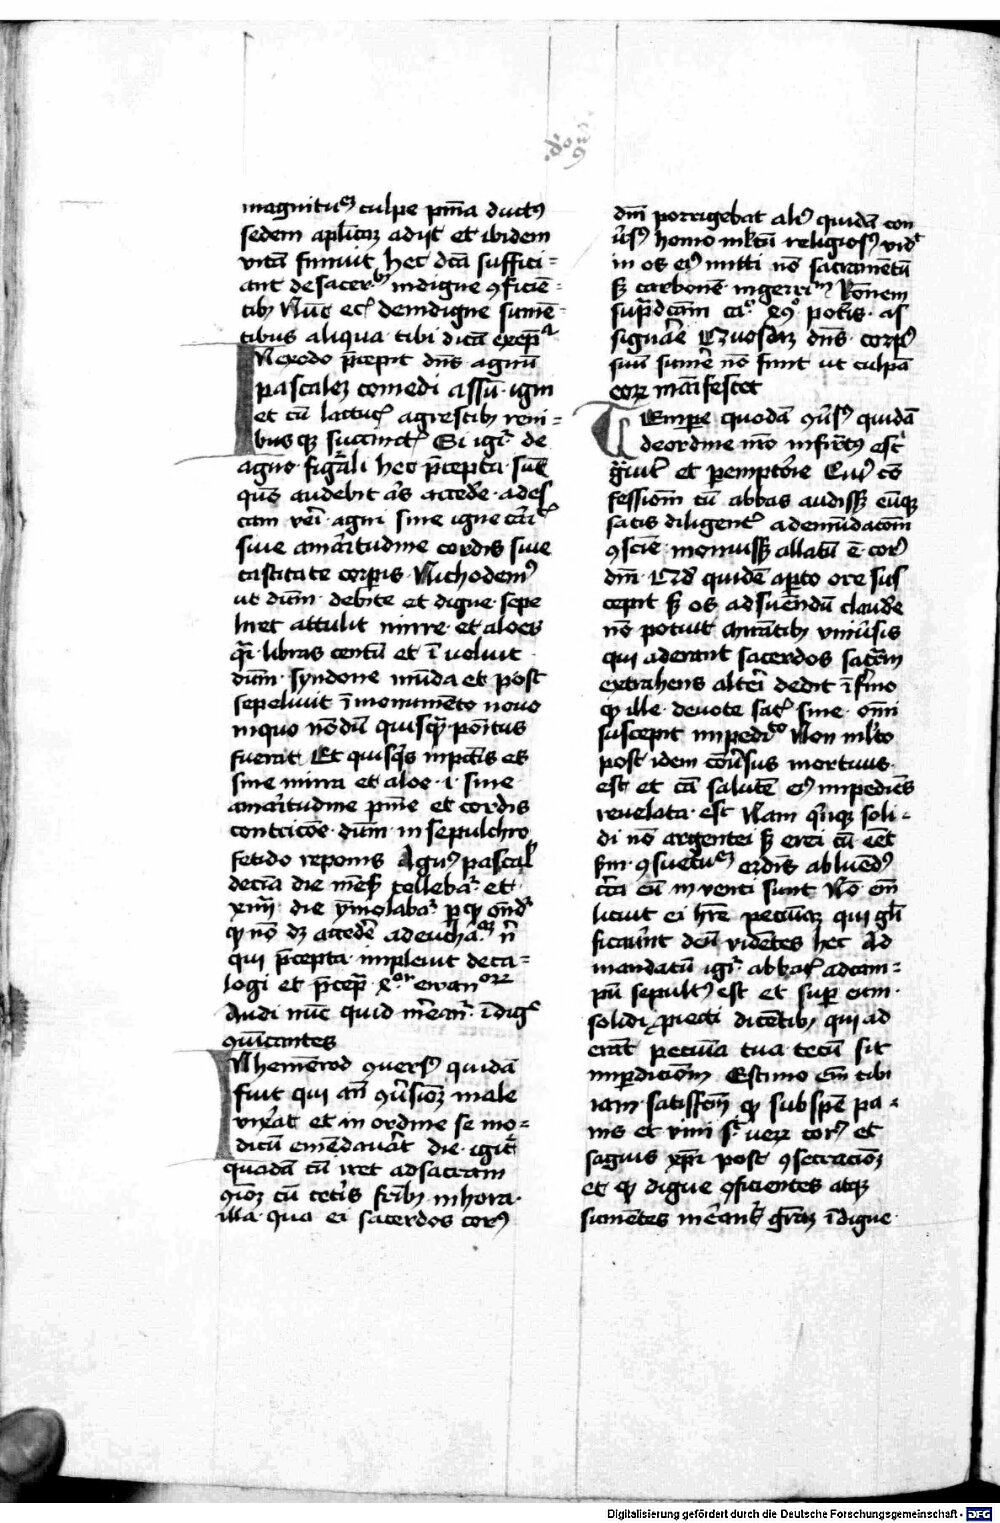 magnitudĩe culpe pñia ductꝰ
sedem aplicaꝫ adijt et ibidem
vitã finiuit hec dc̃a suffici=
ant de sacerbꝰ indigne ꝯficiẽ=
tibꝫ Nũc ecͥ de indigne sumẽ=
tibus aliqua tibi dicã exepᷓ
IN exodo p̃cepit dñs agnũ
pascaleꝫ comedi assũ igni
et cũ lactucͥ agrestibꝫ reni=
busqꝫ succinctͥ Si igiͬ de
agno figᷓli hec p̃cepta sũt
quõ audebit aͥs accede᷑ ad es
cam veri agni sine igne cãri
siue amaͥtudine cordis siue
castitate corꝑis Nichodemꝰ
ut dũm debite et digne sepe
liret attulit mirre et aloes
qͣi libras centũ et ĩ voluit
dũm syndone mũda et post
sepeliuit ĩ monumẽto nouo
in quo nõdũ quisqᷓ poĩtus
fuerat Et quisqͥs inpct̃is es
sine mirra et aloe .i. sine
amaͥtudine pñie et cordis
contricõe dũm in sepulchro
fetido reponis Agnꝰ pascał
decĩa die mẽs tollebaͬ et
xiiij die ỹmolabaͬ ꝑ qꝫ oñdͬ
qꝫ nõ dꝫ accede᷑ ad eucħaͣꝫ nͥ
qui p̃cepta impleuit deca=
logi et p̃cepᷓ xͦrũ ewanorꝫ
Audi nũc quid me᷑anͬ ĩdigͤ
ꝯuĩcantes
IN hemẽrod ꝯuersꝰ quidã
fuit qui añ ꝯũsioꝫ male
vixe᷑at et in ordine se mo=
dicũ emẽdaua᷑t die igiͬ
quadã cũ iret ad sacram
ꝯioꝫ cũ cete᷑is fr̃ibꝫ in hora
illa qua ei sacerdos corꝰ
dñi porrigebat aliꝰ quidã con
ũsꝰ homo mltũ religiosꝰ vidͭ
in os eiꝰ mitti nõ sacramẽtũ
sꝫ carbonẽ ingeri Rõnem
sup̃dcãm poteris as
signa᷑e Quosdaꝫ dñs corpꝰ
suũ sume᷑ nõ sinit ut culpã
eorꝫ maĩfestet
Tempe quodã ꝯũsꝰ quidã
de ordine nr̃o infirmꝰ est
gᷓuit᷑ et ꝑempto᷑ie Cuiꝰ cõ
fessionẽ cũ abbas audissꝫ eũqꝫ
satis diligentͬ ad emũdacõm
ꝯsciẽ monuissꝫ allatũ ẽ corꝰ
dñi Qd̃ quidẽ apto ore sus
cepit sꝫ os ad sumẽdũ claude᷑
nõ potuit Mirãtibꝫ vniũsis
qui aderant sacerdos sacᷓm
extrahens alteri dedit ĩfirmo
qꝫ ille deuote satͥ sine omĩ
suscepit impedͥto Non ml̃to
post idem cõuersus mortuus
est et cã salutẽ eiꝰ impediẽs
reuelata est Nam qͥnqꝫ soli=
di nõ argentei sꝫ erei cũ eẽt
scm̃ ꝯsuetuẽꝫ ordĩs abluẽdꝰ
ct̃a eũ inuenti sunt Nõ em̃
licuit ei hr̃e pecuniaꝫ qui gl̃i
ficaue᷑nt deũ vidẽtes hec Ad
mandatũ igiͬ abbatͥ ad cam=
pũ sepultꝰ est et suꝑ eum
solidi ꝓiecti dicẽtibꝫ qui ad
erãt pecuĩa tua tecũ sit
in ꝑdicionẽ Estimo em̃ tibi
iam satisfcm̃ qꝫ sub spẽ pa=
nis et vini sͥ verꝫ corꝰ et
sanguis xp̃i post ꝯsecracioꝫ
et qꝫ digne ꝯficientes atqꝫ
sumẽtes me᷑antͬ gr̃aꝫ ĩdigne